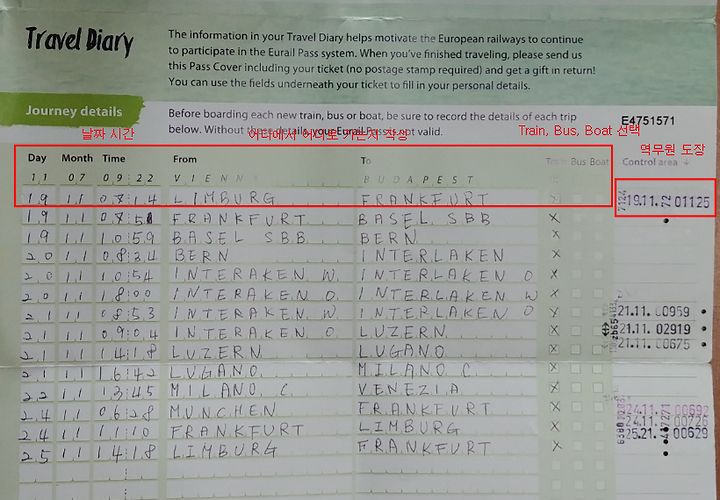 Travel Diary
The information in your Travel Diary helps motivate the European railways to continue
to participate in the Eurail Pass system. When you've finished traveling, please send us
this Pass Cover including your ticket (no postage stamp required) and get a gift in return!
You can use the fields underneath your ticket to fill in your personal details.
Journey details
Before boarding each new train, bus or boat, be sure to record the details of each trip
below. Without these details, your Eurail Pass is not valid.
E4751571
날짜 시간
어디에서 어디로 가는지 작성
Train, Bus, Boat 선택
역무원 도장
Day Month Time From To Train Bus Boat Control area
11 07 09:22 VIENNA BUDAPEST
19 11 08:14 LIMBURG FRANKFURT X 19.11. 01125
19 11 08:51 FRANKFURT BASEL SBB X
19 11 10:59 BASEL SBB BERN X
20 11 08:34 BERN INTERLAKEN X
20 11 10:54 INTERAKEN W. INTERLAKEN O X
20 11 18:00 INTERAKEN O. INTERLAKEN W X
21 11 08:53 INTERAKEN W. INTERLAKEN O X 21.11. 00959
21 11 09:04 INTERAKEN O LUZERN X 21.11. 02919
21 11 14:18 LUZERN LUGANO X 21.11. 00675
21 11 16:42 LUGANO MILANO C X
22 11 13:45 MILANO C. VENEZIA X
24 11 06:28 MUNCHEN FRANKFURT X 24.11. 00692
24 11 11:10 FRANKFURT LIMBURG X 24.11. 00726
25 11 14:18 LIMBURG FRANKFURT X 25.21. 00629